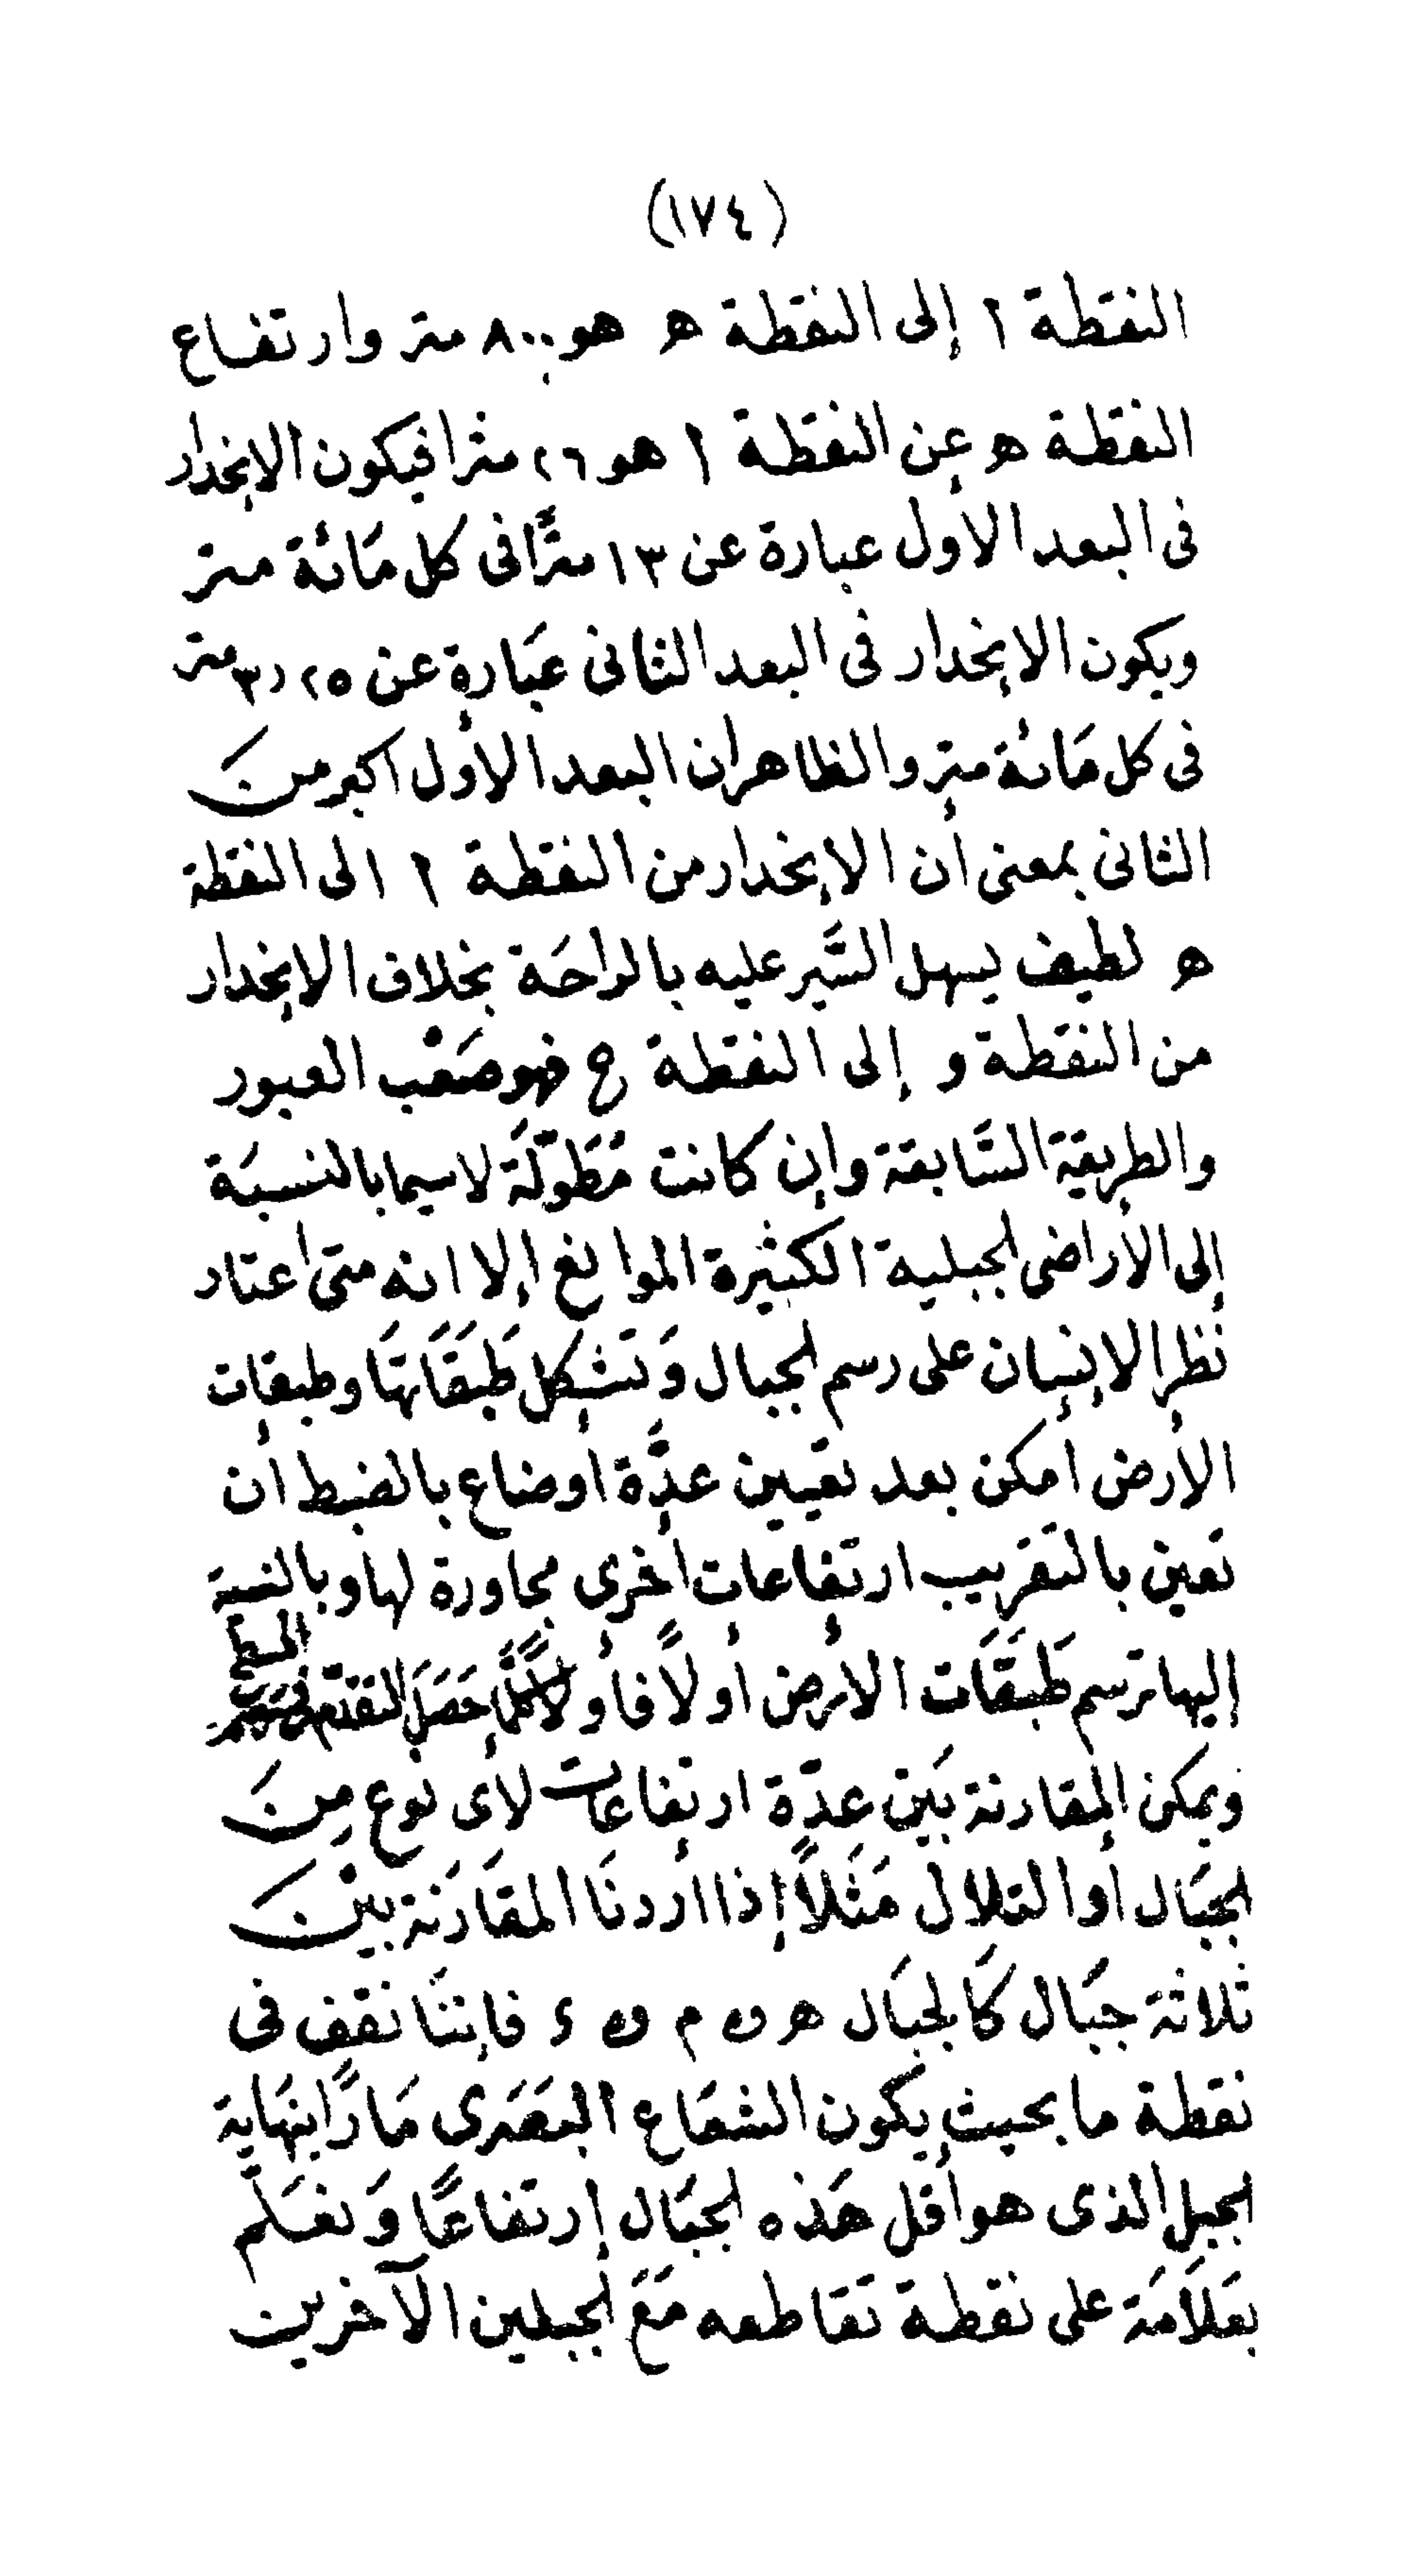 (١٧٤)
النقطة ا إلى النقطة ه هو ٨٠٠ متر وارتفاع
النقطة ه عن النقطة ا هو ٢٦ مترا فيكون الإنحدار
فى البعد الأول عبارة عن ١٣ مترًا فى كل مَائة متر
ويكون الإنحدار فى البعد الثانى عبَارة عن ٣٫٢٥ متر
فى كل مَائة متر والظاهر ان البعد الأول اكبر منَ
الثانى بمعنى أن الإنحدار من النقطة ا الى النقطة
ه لطيف يسهل السَّير عليه بالراحَة بخلاف الإنحدار
من النقطة و إلى النقطة ح فهو صَعْب العبور
والطريقة السَّابقة وإن كانت مُطَوّلَة لاسيما بالنسبَة
إلى الأراضى الجبلية الكثيرة الموانع إلا انه متى اعتاد
نَظر الإنسان على رسم الجبال وَتشكل طَبَقَاتهَا وطبقات
الأرض أمكن بعد تعيين عدَّة أوضاع بالضبط أن
تعين بالتقريب ارتفاعات أخرى مجاورة لها وبالنسبة
إليها ترسم طَبَقَات الأرض أولاً فأولاً كلَّمَا حَصَلَ التقدّم فى المسطح
ويمكن المقارنة بَين عدّة ارتفاعات لأى نوع مِنَ
الجبَال أو التلال مَثَلاً إذا أردنَا المقَارَنَة بيْنَ
ثلاثة جبَال كَالجبَال ه و م و ء فإننَا نقف فى
نقطة ما بحيث يكون الشعَاع البَصَرى مَارًا بنهَاية
الجبل الذى هو أقل هَذه الجبَال إرتفاعًا وَنعْلَم
بعَلاَمَة على نقطة تقَاطعه مَعَ الجبلين الآخرين